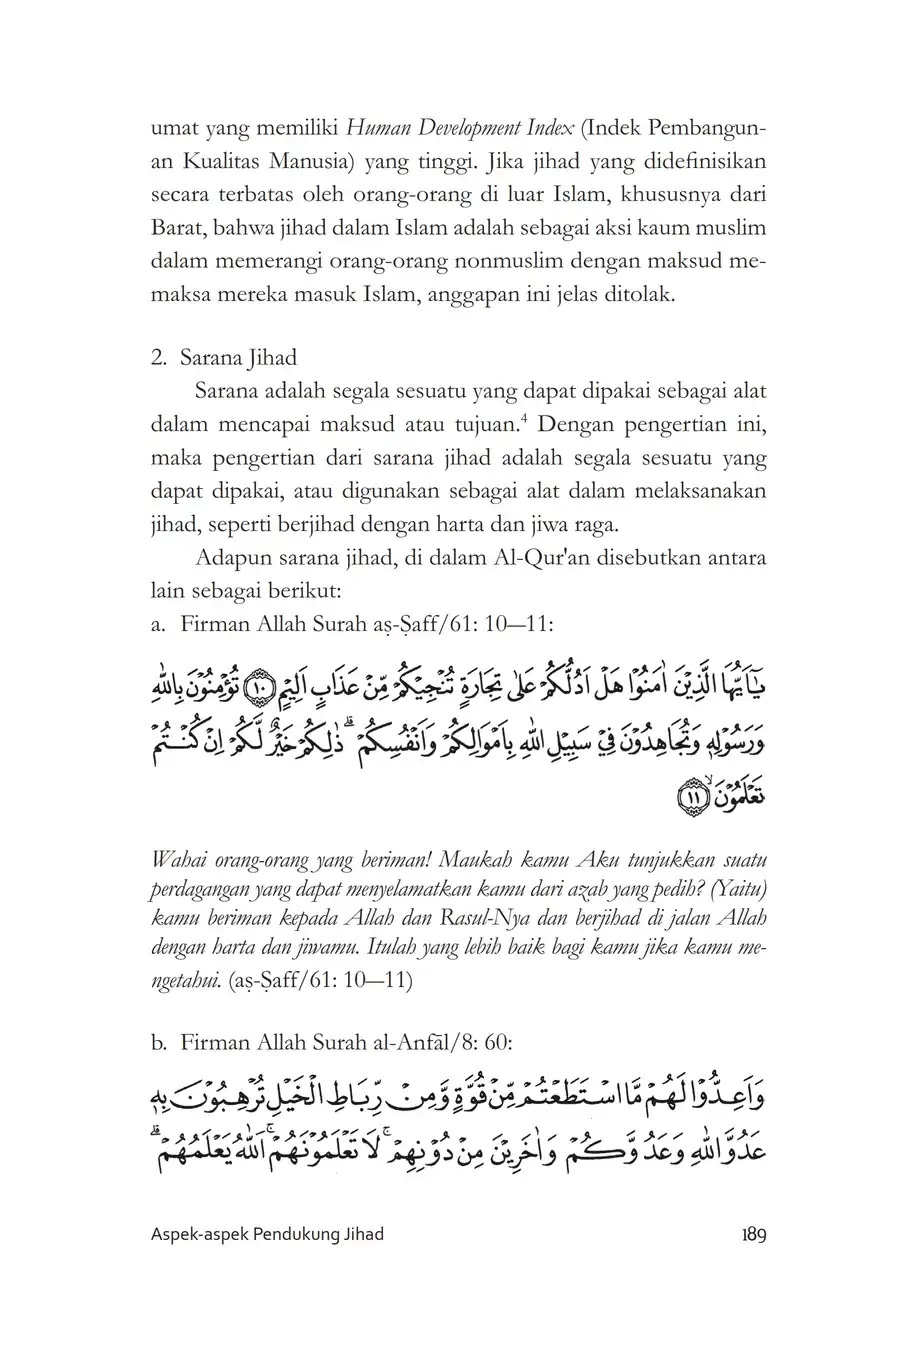 umat yang memiliki Human Development Index (Indek Pembangun-
an Kualitas Manusia) yang tinggi. Jika jihad yang didefinisikan
secara terbatas oleh orang-orang di luar Islam, khususnya dari
Barat, bahwa jihad dalam Islam adalah sebagai aksi kaum muslim
dalam memerangi orang-orang nonmuslim dengan maksud me-
maksa mereka masuk Islam, anggapan ini jelas ditolak.
2. Sarana Jihad
Sarana adalah segala sesuatu yang dapat dipakai sebagai alat
dalam mencapai maksud atau tujuan.⁴ Dengan pengertian ini,
maka pengertian dari sarana jihad adalah segala sesuatu yang
dapat dipakai, atau digunakan sebagai alat dalam melaksanakan
jihad, seperti berjihad dengan harta dan jiwa raga.
Adapun sarana jihad, di dalam Al-Qur'an disebutkan antara
lain sebagai berikut:
a. Firman Allah Surah aṣ-Ṣaff/61: 10—11:
يٰٓاَيُّهَا الَّذِيْنَ اٰمَنُوْا هَلْ اَدُلُّكُمْ عَلٰى تِجَارَةٍ تُنْجِيْكُمْ مِّنْ عَذَابٍ اَلِيْمٍ ١٠ تُؤْمِنُوْنَ بِاللّٰهِ
وَرَسُوْلِهٖ وَتُجَاهِدُوْنَ فِيْ سَبِيْلِ اللّٰهِ بِاَمْوَالِكُمْ وَاَنْفُسِكُمْۗ ذٰلِكُمْ خَيْرٌ لَّكُمْ اِنْ كُنْتُمْ
تَعْلَمُوْنَۙ ١١
Wahai orang-orang yang beriman! Maukah kamu Aku tunjukkan suatu
perdagangan yang dapat menyelamatkan kamu dari azab yang pedih? (Yaitu)
kamu beriman kepada Allah dan Rasul-Nya dan berjihad di jalan Allah
dengan harta dan jiwamu. Itulah yang lebih baik bagi kamu jika kamu me-
ngetahui. (aṣ-Ṣaff/61: 10—11)
b. Firman Allah Surah al-Anfāl/8: 60:
وَاَعِدُّوْا لَهُمْ مَّا اسْتَطَعْتُمْ مِّنْ قُوَّةٍ وَّمِنْ رِّبَاطِ الْخَيْلِ تُرْهِبُوْنَ بِهٖ
عَدُوَّ اللّٰهِ وَعَدُوَّكُمْ وَاٰخَرِيْنَ مِنْ دُوْنِهِمْۚ لَا تَعْلَمُوْنَهُمْۚ اَللّٰهُ يَعْلَمُهُمْۗ
Aspek-aspek Pendukung Jihad 189